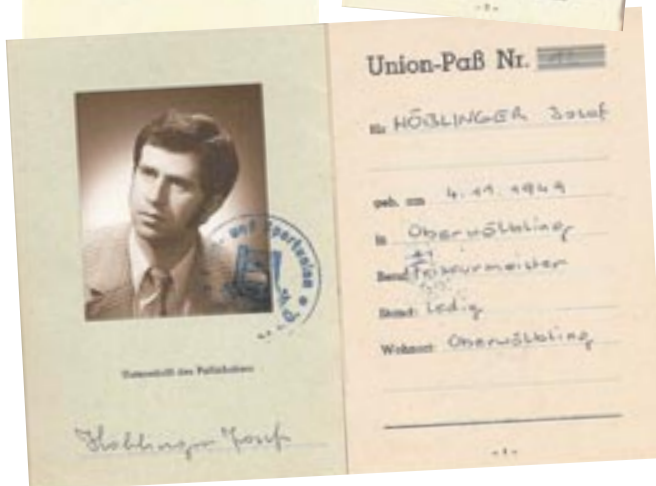 - 2 -
und Sportunion
Unterschrift des Paßinhabers
Hößlinger Josef
Union-Paß Nr.
für HÖßLINGER Josef
geb. am 4. 11. 1949
in Oberwölbling
Beruf: Friseurmeister
Stand: ledig
Wohnort: Oberwölbling